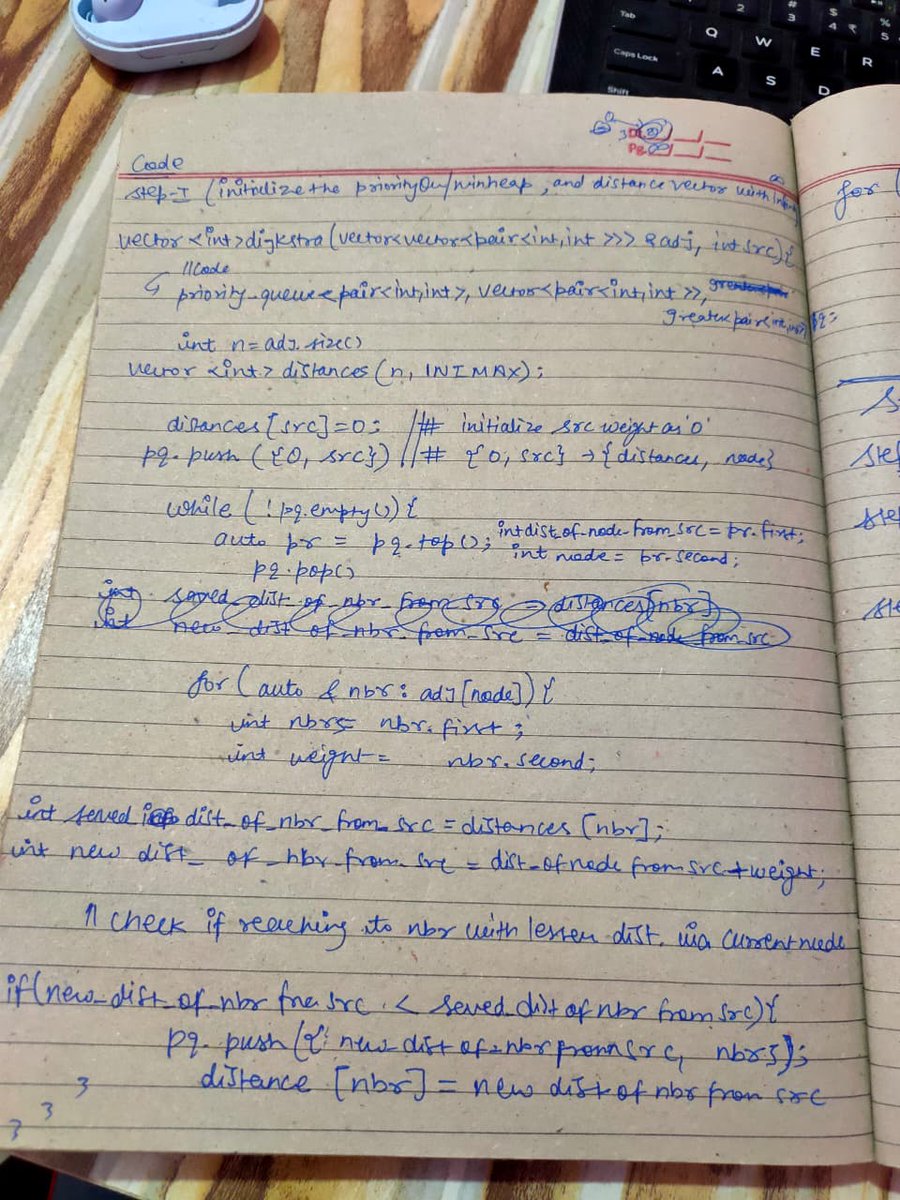 Tab
Caps Lock
Shift
Q W E R
A S D
2 # 3 $ 4 ₹ % 5
Code
step-I (initialize the priorityQu/minheap, and distance vector with
vector <int> dijkstra (vector<vector<pair<int,int>>> &adj, int src){
//Code
priority-queue<pair<int,int>, vector<pair<int,int>>,
greater<pair<int,int>> pq;
int n=adj.size()
vector <int> distances (n, INTMAX);
distances [src]=0; //# initialize src weight as '0'
pq.push ({0, src}) //# {0, src} → {distances, node}
while (!pq.empty()){
auto pr = pq.top(); int dist_of_node_from_src = pr.first;
int node = pr.second;
pq.pop()
int saved_dist_of_nbr_from_src = distances[nbr]
int new_dist of nbr from src = dist_of_node from_src
for (auto & nbr : adj[node]){
int nbrs= nbr.first;
int weight= nbr.second;
int saved dist_of_nbr_from_src = distances [nbr];
int new dist_ of_nbr_from_src = dist_of node from src + weight;
// check if reaching to nbr with lesser dist. via current node
if(new_dist_of_nbr src < saved_dist of nbr from src){
pq. push ({ new_dist of-nbr from src, nbr});
distance [nbr] = new dist of nbr from src
}
}
}
for (
step
step